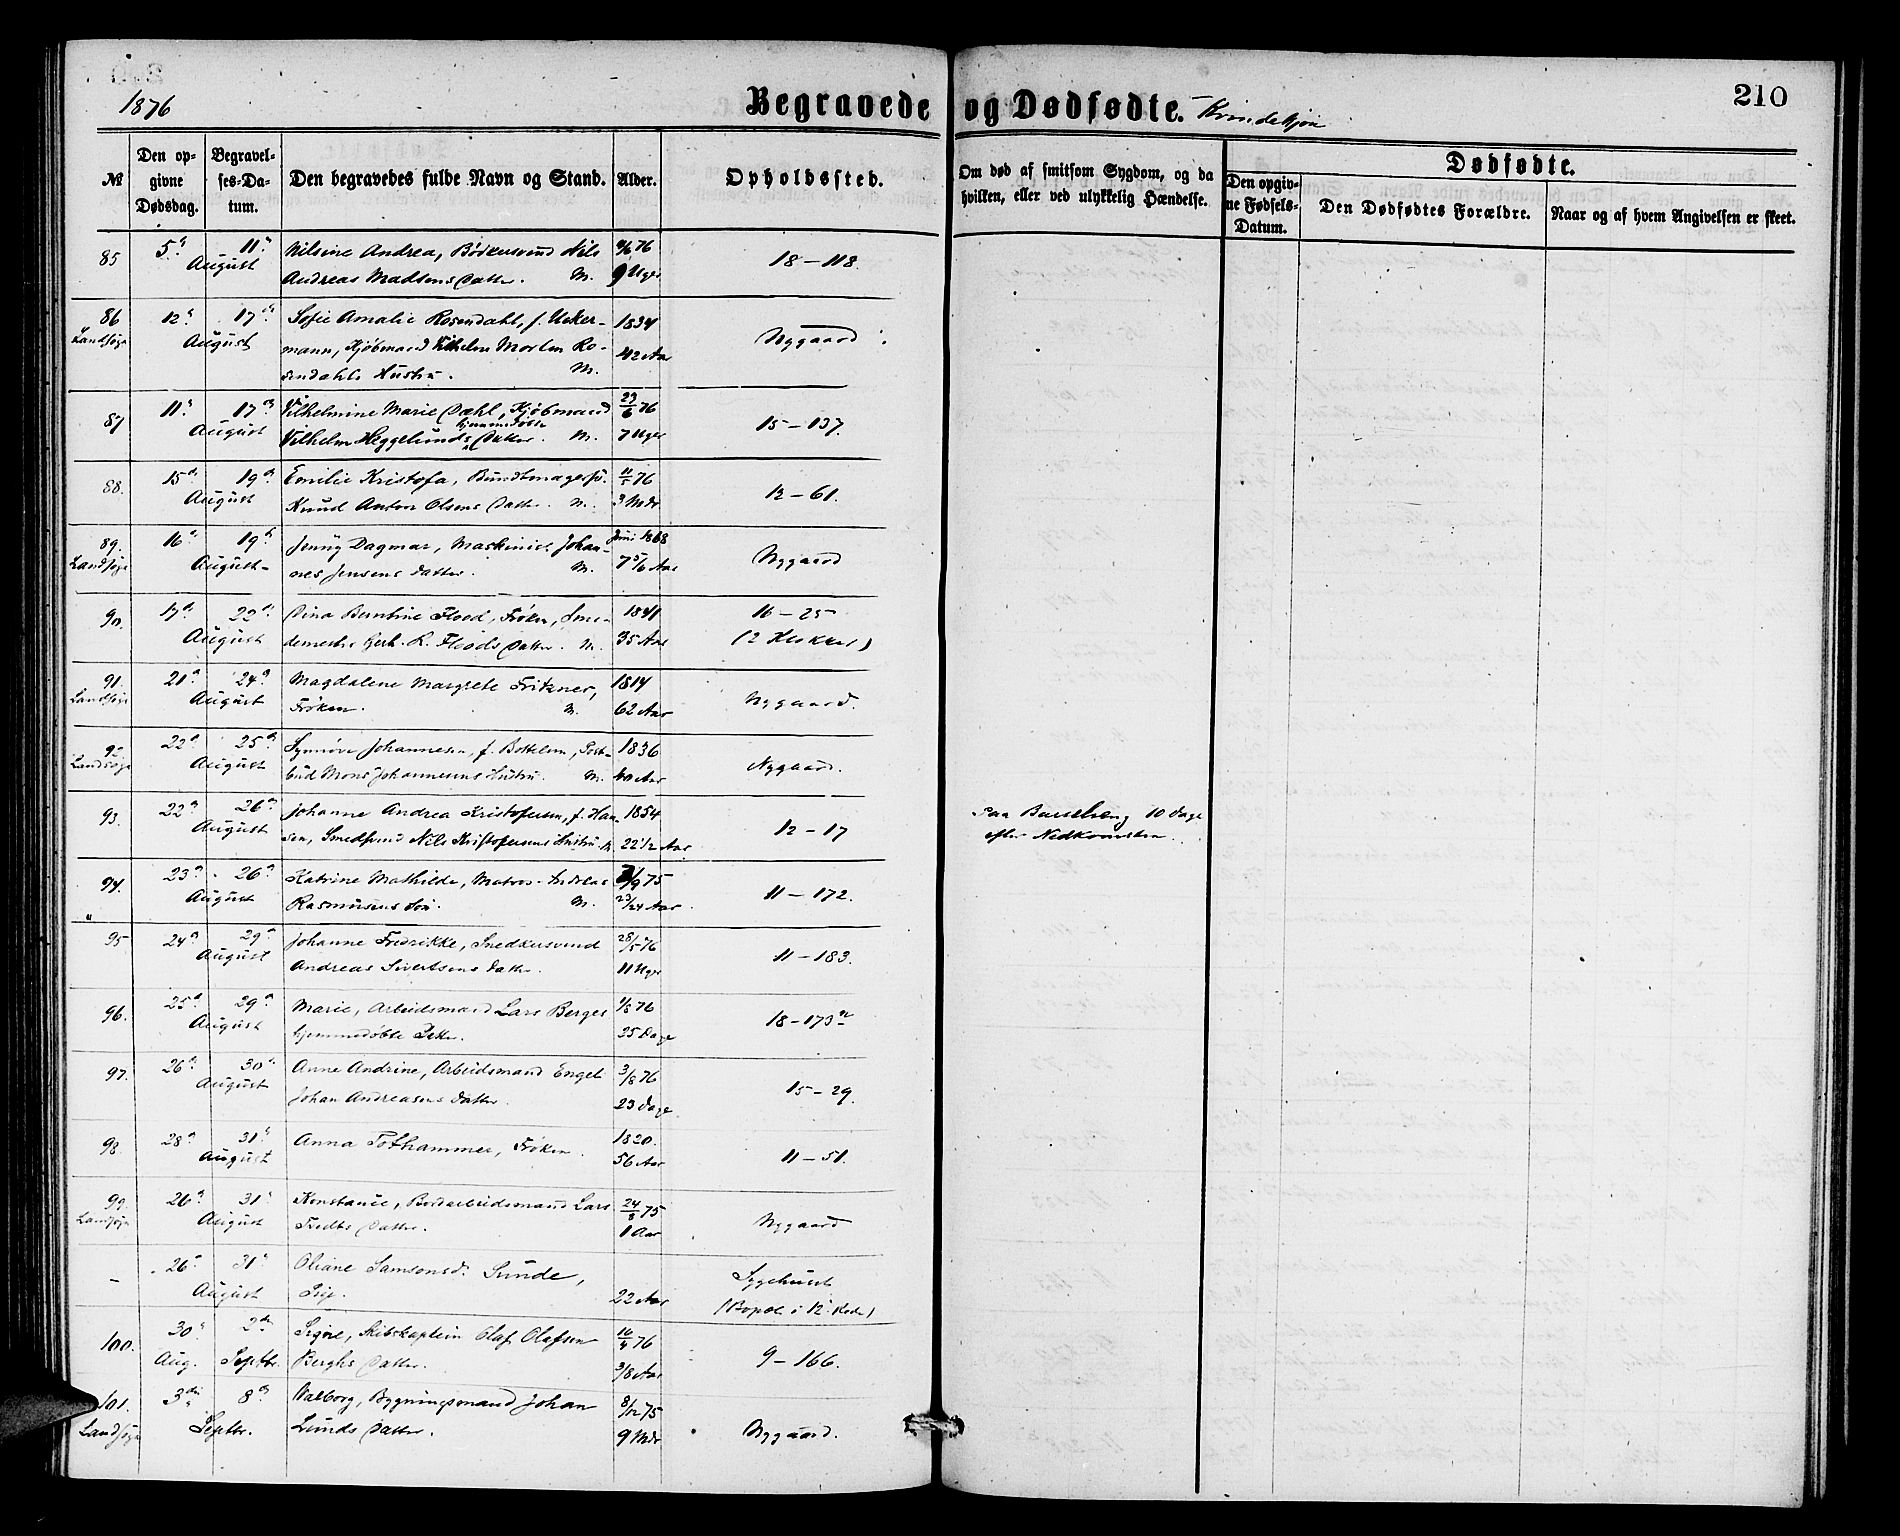 1876
Begravede og Dødfødte. Kvindekjøn
210
№
Den op-
givne
Dødsdag.
Begravel-
ses-Da-
tum.
Den begravedes fulde Navn og Stand.
Alder.
Opholdssted.
Om død af smitsom Sygdom, og da
hvilken, eller ved ulykkelig Hændelse.
Dødfødte.
Den opgiv-
ne Fødsels-
Datum.
Den Dødfødtes Forældre.
Naar og af hvem Angivelsen er skeet.
85 5 11 August Nilsine Andrea, Bødkersvend Nils
Andreas Madsens Datter. M. 76 9 Uger 18 – 118.
86 Landsogn 12 17 August Sofie Amalie Rosendahl, f. Ucker-
mann, Kjøbmand Vilhelm Morten Ro-
sendahls Hustru. M. 1834 42 Aar Nygaard
87 11 17 August Vilhelmine Marie Dahl, Kjøbmand
Vilhelm Heggelunds hjemmedøbte Datter. M. 23/6 76 7 Uger 15 – 137.
88. 15 19 August Emilie Kristofa, Bundtmagersv.
Knud Anton Olsens Datter. M. 11/5 76 3 Mdr 12 – 61.
89. Landsogn 16 19 August Jenny Dagmar, Maskinist Johan-
nes Jensens Datter. M. Juni 1868 7 5/6 Aar Nygaard
90. 17 22 August Dina Berntine Flood, Frøken,
Floods Datter. M. 1841 35 Aar 16 – 25
(2 Klokker)
91. Landsogn 21 24 August Magdalene Margrete Fritzner,
Frøken. M. 1814 62 Aar Nygaard.
92. Landsogn 22 25 August Synnøve Johannesen, f. Bottelsen, Post-
bud Mons Johannesens Hustru. M. 1836 40 Aar Nygaard.
93. 22 26 August Johanne Andrea Kristofersen, f. Han-
sen, Smedsvend Nils Kristofersens Hustru. M. 1854 22 1/2 Aar 12 – 17 Paa Barselseng 10 Dage
efter Nedkomsten.
94. 23 26 August Katrine Mathilde, Matros Andreas
Rasmusens M. /9 75 23/24 Aar 11 – 172.
95 24 29 August Johanne Fredrikke, Snedkersvend
Andreas Sivertsens Datter. 28/5 76 11 Uger 11 – 183.
96. 25 29 August Marie, Arbeidsmand Lars Berges
hjemmedøbte Datter. 1/8 76 25 Dage 18 – 173
97. 26 30 August Anne Andrine, Arbeidsmand Engel
Johan Andreasens Datter. 3/8 76 23 Dage 15 – 29.
98 28 31 August Anna Pothammer, Frøken. 1820. 56 Aar 11 – 51.
99. Landsogn 26 31 August Konstance, Bordarbeidsmand Lars
Datter. 24/8 75 1 Aar Nygaard
– 26 31 August Oliane Samsonsd. Sunde,
Pige. 22 Aar Sygehuset
100. 30 Aug. 2 Septbr. Signe, Skibskaptein Olaf Olafsen
Berghs Datter. 16/4 76 3/8 Aar 9 – 166.
101. Landsogn 3 8 Septbr. Valborg, Bygningsmand Johan
Lunds Datter. 8/12 75 9 Mdr Nygaard.